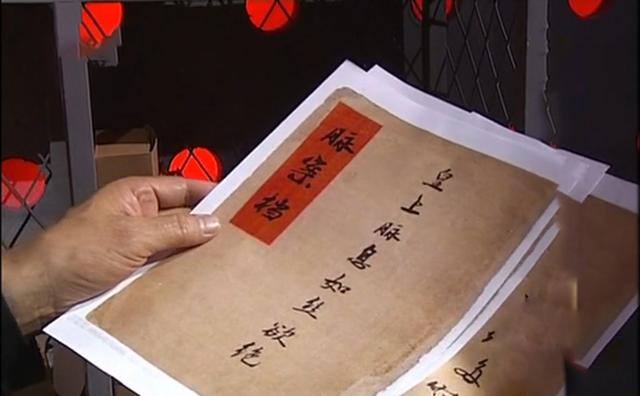 脉案档
皇上脉息如丝欲绝